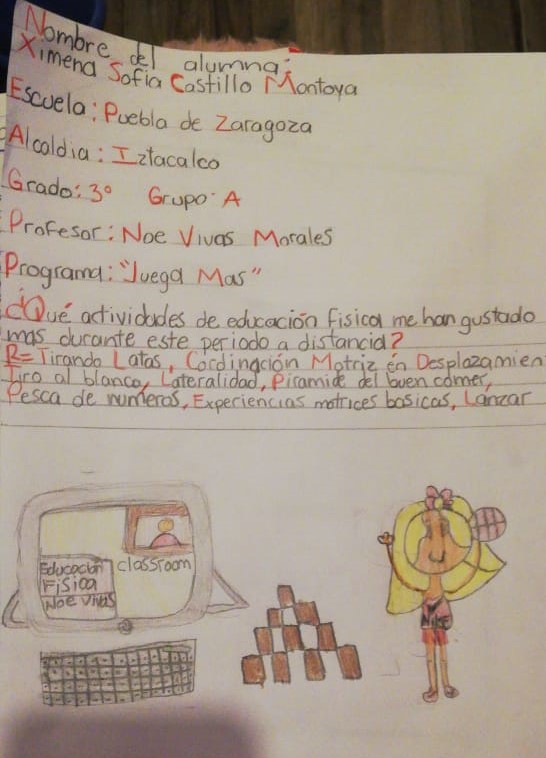 Nombre del alumna:
Ximena Sofia Castillo Montoya
Escuela: Puebla de Zaragoza
Alcaldia: Iztacalco
Grado: 3° Grupo: A
Profesor: Noe Vivas Morales
Programa: "Juega Mas"
¿Qué actividades de educación fisica me han gustado
mas durante este periodo a distancia?
R= Tirando Latas, Cordinación Motriz en Desplazamien
tiro al blanco, Lateralidad, Piramide del buen comer,
Pesca de numeros, Experiencias motrices basicas, Lanzar
Educación
Fisica
Noe Vivas
classroom
NIKE